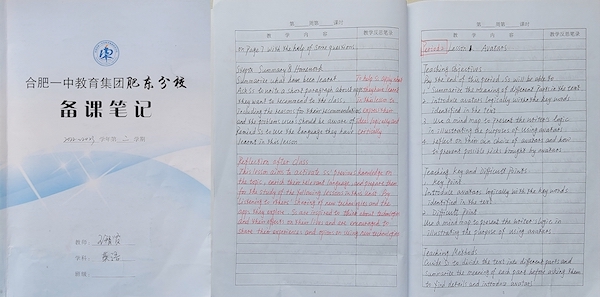 合肥一中教育集团肥东分校
备课笔记
学年第二学期
教师:
学科: 英语
班级:
第 周第 课时
教 学 内 容 教学反思笔录
on Page 7 with the help of some questions.
Step 5 Summary & Homework
Summarize what have been learnt
Ask Ss to write a short paragraph about app
they want to recommend to the class,
including the reasons for their recommendation
and the problems users should be aware of
Remind Ss to use the language they have
learned in this lesson
Reflection after class
This lesson aims to activate Ss' previous knowledge on
the topic, enrich their relevant language, and prepare them
for the study of the following lessons in this unit. By
listening to others' sharing of new technologies and the
apps they explore, Ss are inspired to think about technologies
and their effects on their lives and are encouraged to
share their experiences and opinion in using new technologies
第 周第 课时
教 学 内 容 教学反思笔录
Lesson 1 Avatars
Teaching Objectives
By the end of this period, Ss will be able to
1. Summarize the meaning of different parts in the text
2. introduce avatars logically with the key words
identified in the text
3. Use a mind map to present the writer's logic
in illustrating the purpose of using avatars
4. reflect on their own choice of avatars and how
to prevent possible risks brought by avatars
Teaching Key and Difficult Points
1. Key Point
Introduce avatars logically with the key words
identified in the text.
2. Difficult Point
Use a mind map to present the writer's logic in
illustrating the purpose of using avatars
Teaching Methods
Guide Ss to divide the text into different parts and
summarize the meaning of each part before asking them
to find details and introduce avatars